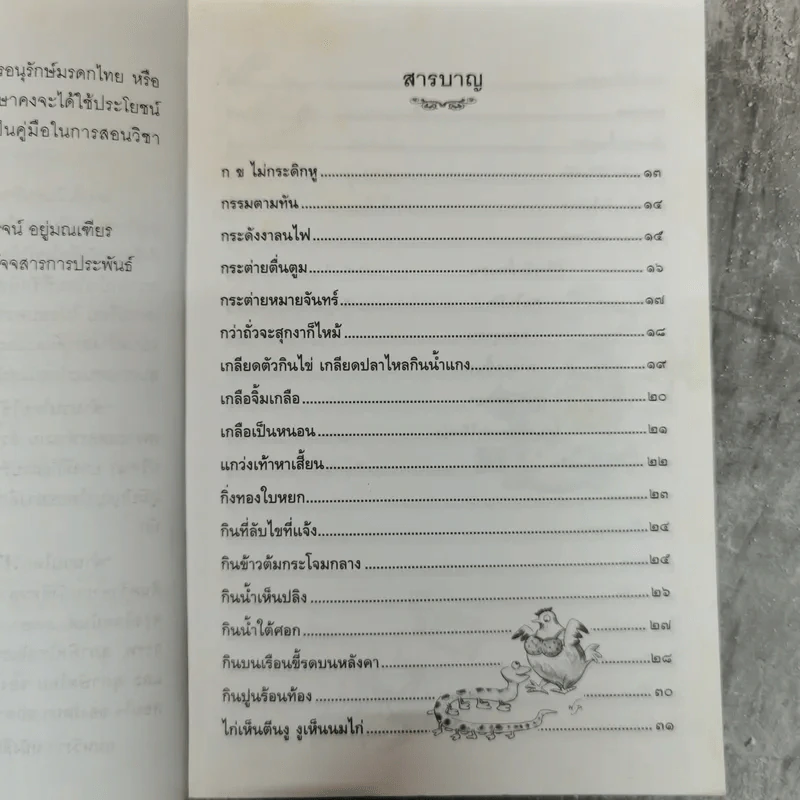 รอนุรักษ์มรดกไทย หรือ
ษาคงจะได้ใช้ประโยชน์
ป็นคู่มือในการสอนวิชา
จน์ อยู่มณเฑียร
จจสารการประพันธ์
สารบาญ
ก ข ไม่กระดิกหู ๑๓
กรรมตามทัน ๑๔
กระดังงาลนไฟ ๑๕
กระต่ายตื่นตูม ๑๖
กระต่ายหมายจันทร์ ๑๗
กว่าถั่วจะสุกงาก็ไหม้ ๑๘
เกลียดตัวกินไข่ เกลียดปลาไหลกินน้ำแกง ๑๙
เกลือจิ้มเกลือ ๒๐
เกลือเป็นหนอน ๒๑
แกว่งเท้าหาเสี้ยน ๒๒
กิ่งทองใบหยก ๒๓
กินที่ลับไขที่แจ้ง ๒๔
กินข้าวต้มกระโจมกลาง ๒๕
กินน้ำเห็นปลิง ๒๖
กินน้ำใต้ศอก ๒๗
กินบนเรือนขี้รดบนหลังคา ๒๘
กินปูนร้อนท้อง ๓๐
ไก่เห็นตีนงู งูเห็นนมไก่ ๓๑